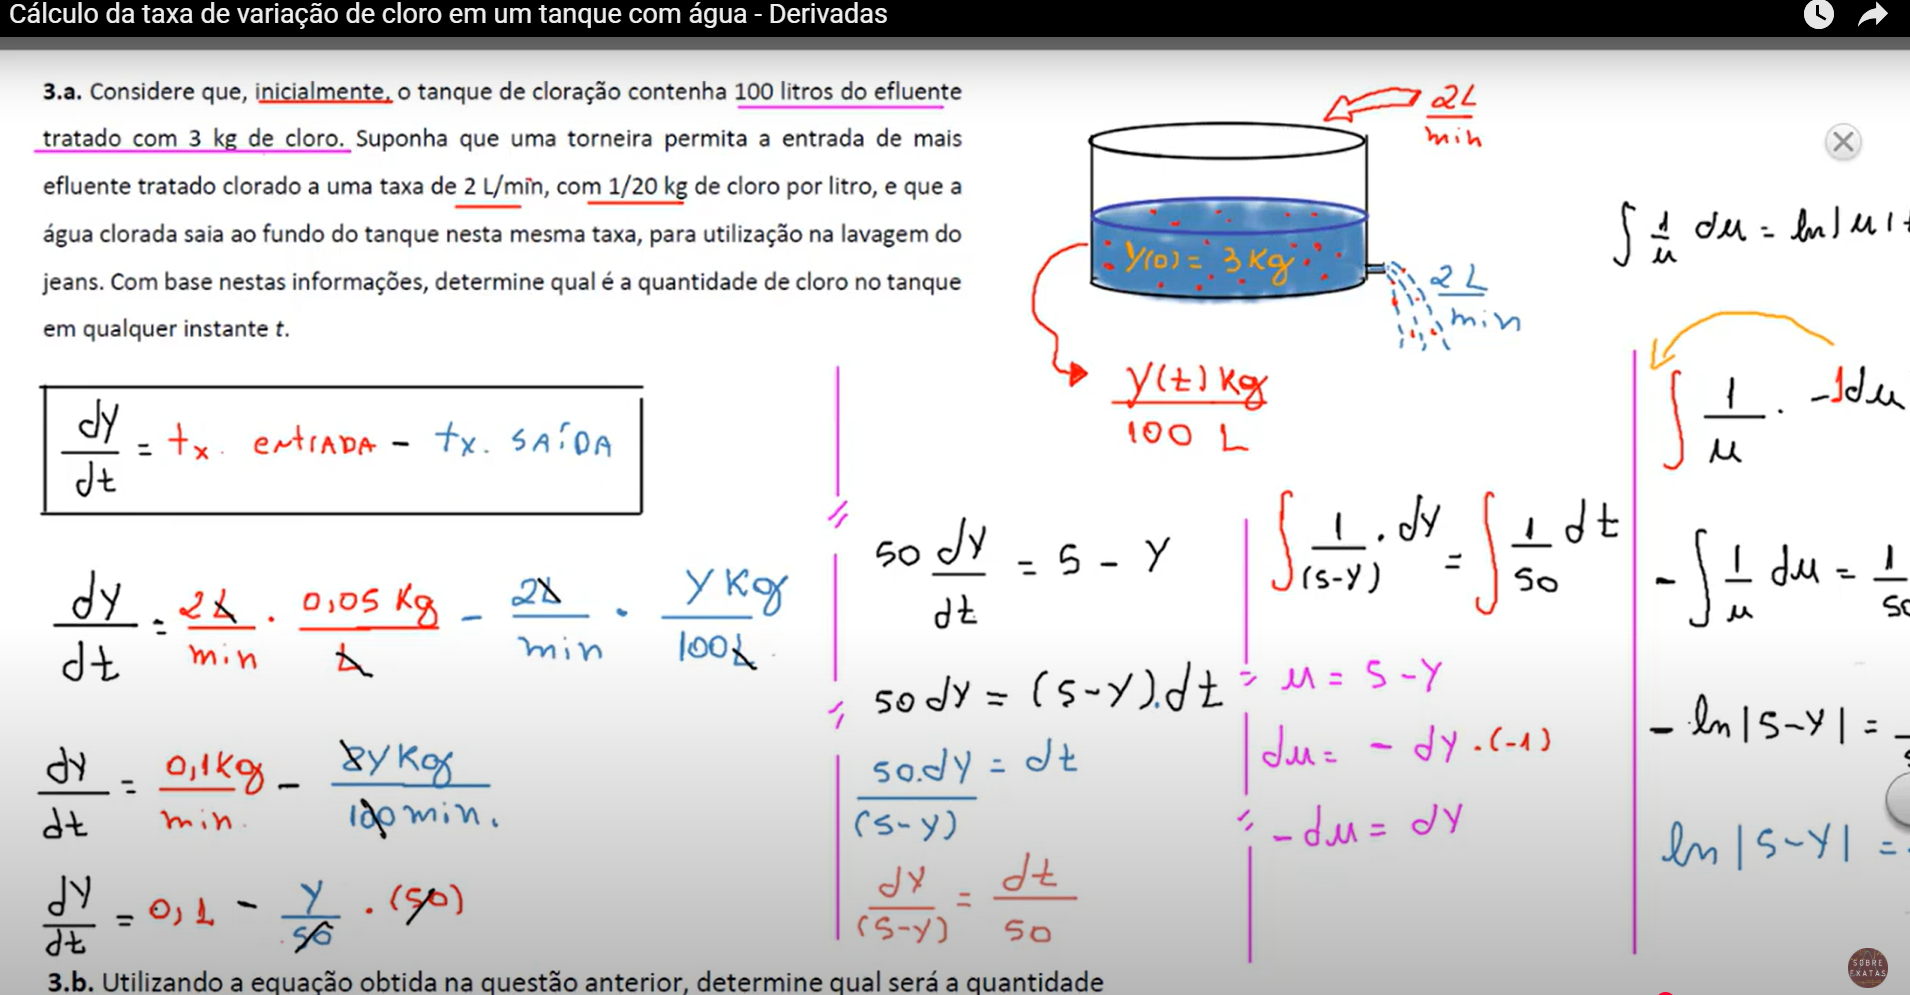 Cálculo da taxa de variação de cloro em um tanque com água - Derivadas
3.a. Considere que, inicialmente, o tanque de cloração contenha 100 litros do efluente
tratado com 3 kg de cloro. Suponha que uma torneira permita a entrada de mais
efluente tratado clorado a uma taxa de 2 L/min, com 1/20 kg de cloro por litro, e que a
água clorada saia ao fundo do tanque nesta mesma taxa, para utilização na lavagem do
jeans. Com base nestas informações, determine qual é a quantidade de cloro no tanque
em qualquer instante t.
2L/min
Y(0) = 3Kg
2L/min
Y(t) Kg / 100 L
dY/dt = tx. entrada - tx. SAÍDA
dY/dt = 2L/min . 0,05 Kg/L - 2L/min . Y Kg/100L
dY/dt = 0,1Kg/min. - 2Y Kg/100min.
dY/dt = 0,1 - Y/50 . (50)
50 dY/dt = 5 - Y
50 dY = (5-Y).dt
50.dY/(5-Y) = dt
dY/(5-Y) = dt/50
∫ 1/(5-Y) . dY = ∫ 1/50 dt
u = 5-Y
du = - dY .(-1)
-du = dY
∫ 1/u du = ln|u|+
∫ 1/u . -1du
- ∫ 1/u du = 1/50
- ln|5-Y| =
ln|5-Y| =
3.b. Utilizando a equação obtida na questão anterior, determine qual será a quantidade
SOBRE
EXATAS